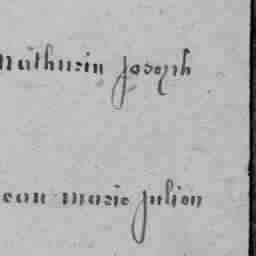 Mathurin joseph
jean marie julien